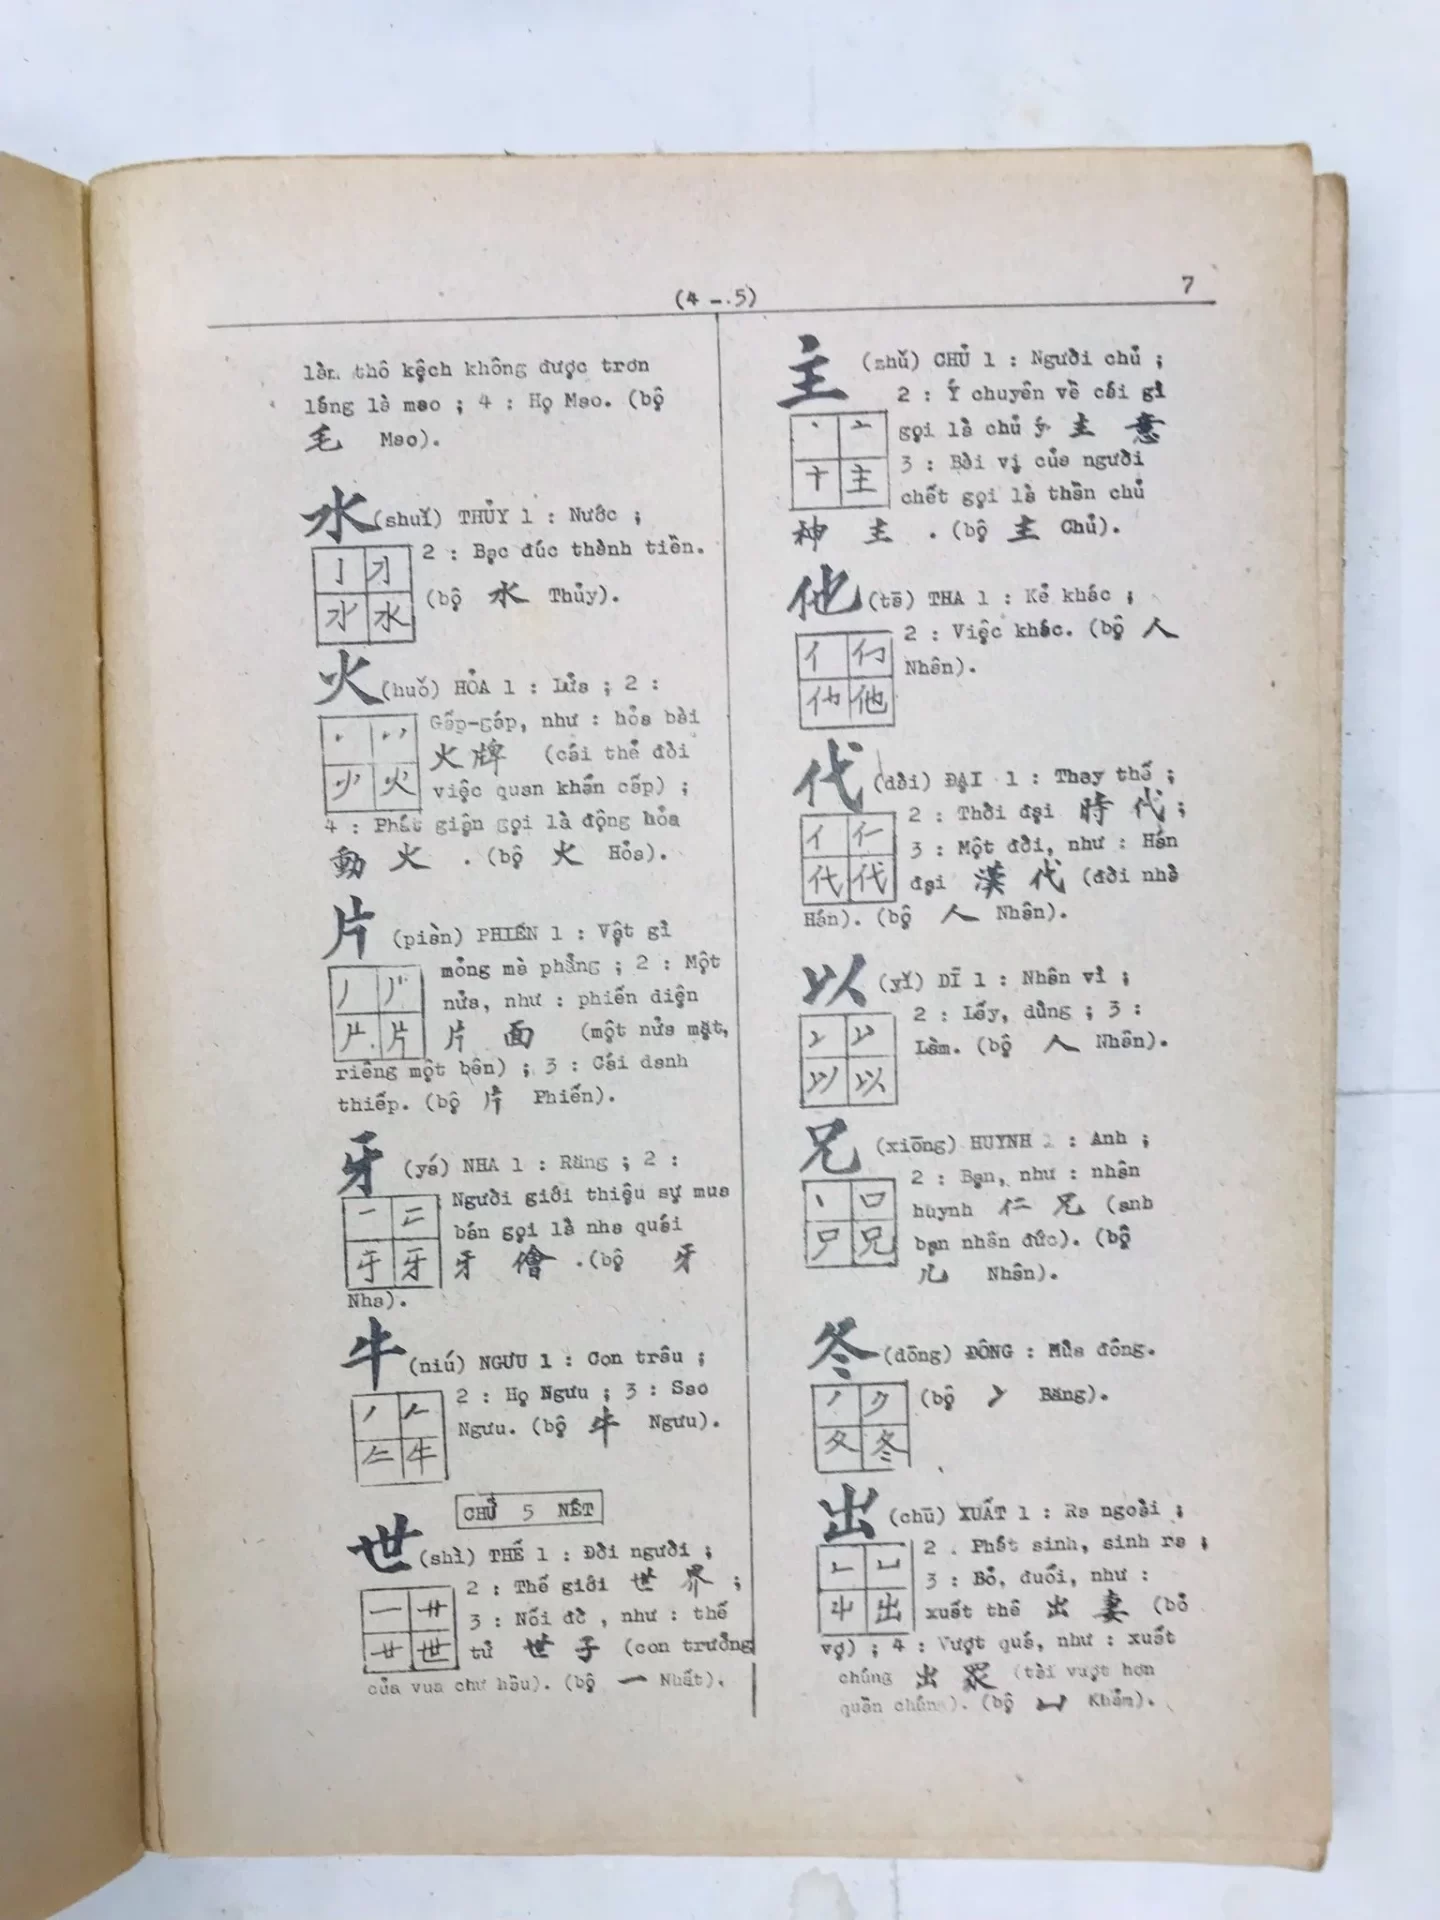 (4 - 5)
7
làm thô kệch không được trơn
láng là mao ; 4 : Họ Mao. (bộ
毛 Mao).
水 (shuǐ) THỦY 1 : Nước ;
2 : Bạc đúc thành tiền.
(bộ 水 Thủy).
火 (huǒ) HỎA 1 : Lửa ; 2 :
Gấp-gáp, như : hỏa bài
火 牌 (cái thẻ đòi
việc quan khẩn cấp) ;
4 : Phát giận gọi là động hỏa
動 火 . (bộ 火 Hỏa).
片 (piàn) PHIẾN 1 : Vật gì
mỏng mà phẳng ; 2 : Một
nửa, như : phiến diện
片 面 (một nửa mặt,
riêng một bên) ; 3 : Cái danh
thiếp. (bộ 片 Phiến).
牙 (yá) NHA 1 : Răng ; 2 :
Người giới thiệu sự mua
bán gọi là nha quái
牙 儈 .(bộ 牙
Nha).
牛 (niú) NGƯU 1 : Con trâu ;
2 : Họ Ngưu ; 3 : Sao
Ngưu. (bộ 牛 Ngưu).
CHỮ 5 NÉT
世 (shì) THẾ 1 : Đời người ;
2 : Thế giới 世 界 ;
3 : Nối đờ , như : thế
tử 世 子 (con trưởng
của vua chư hầu). (bộ 一 Nhất).
主 (zhǔ) CHỦ 1 : Người chủ ;
2 : Ý chuyên về cái gì
gọi là chủ ý 主 意
3 : Bài vị của người
chết gọi là thần chủ
神 主 . (bộ 主 Chủ).
他 (tā) THA 1 : Kẻ khác ;
2 : Việc khác. (bộ 人
Nhân).
代 (dài) ĐẠI 1 : Thay thế ;
2 : Thời đại 時 代 ;
3 : Một đời, như : Hán
đại 漢 代 (đời nhà
Hán). (bộ 人 Nhân).
以 (yǐ) DĨ 1 : Nhân vì ;
2 : Lấy, dùng ; 3 :
Làm. (bộ 人 Nhân).
兄 (xiōng) HUYNH 1 : Anh ;
2 : Bạn, như : nhân
huynh 仁 兄 (anh
bạn nhân đức). (bộ
儿 Nhân).
冬 (dōng) ĐÔNG : Mùa đông.
(bộ 冫 Băng).
出 (chū) XUẤT 1 : Ra ngoài ;
2 . Phát sinh, sinh ra ;
3 : Bỏ, đuổi, như :
xuất thê 出 妻 (bỏ
vợ) ; 4 : Vượt quá, như : xuất
chúng 出 眾 (tài vượt hơn
quần chúng). (bộ 凵 Khảm).